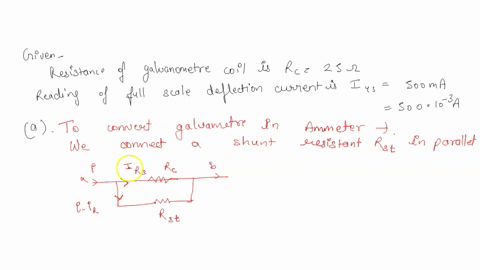 Given-
Resistance of galvanometre coil is Rc = 25Ω
Reading of full scale deflection current is I = 500 mA
= 500 * 10⁻³A
(a). To convert galvametre in Ammeter →.
We connect a shunt resistant Rst in parallel
a P I Rs Rc b
Rst